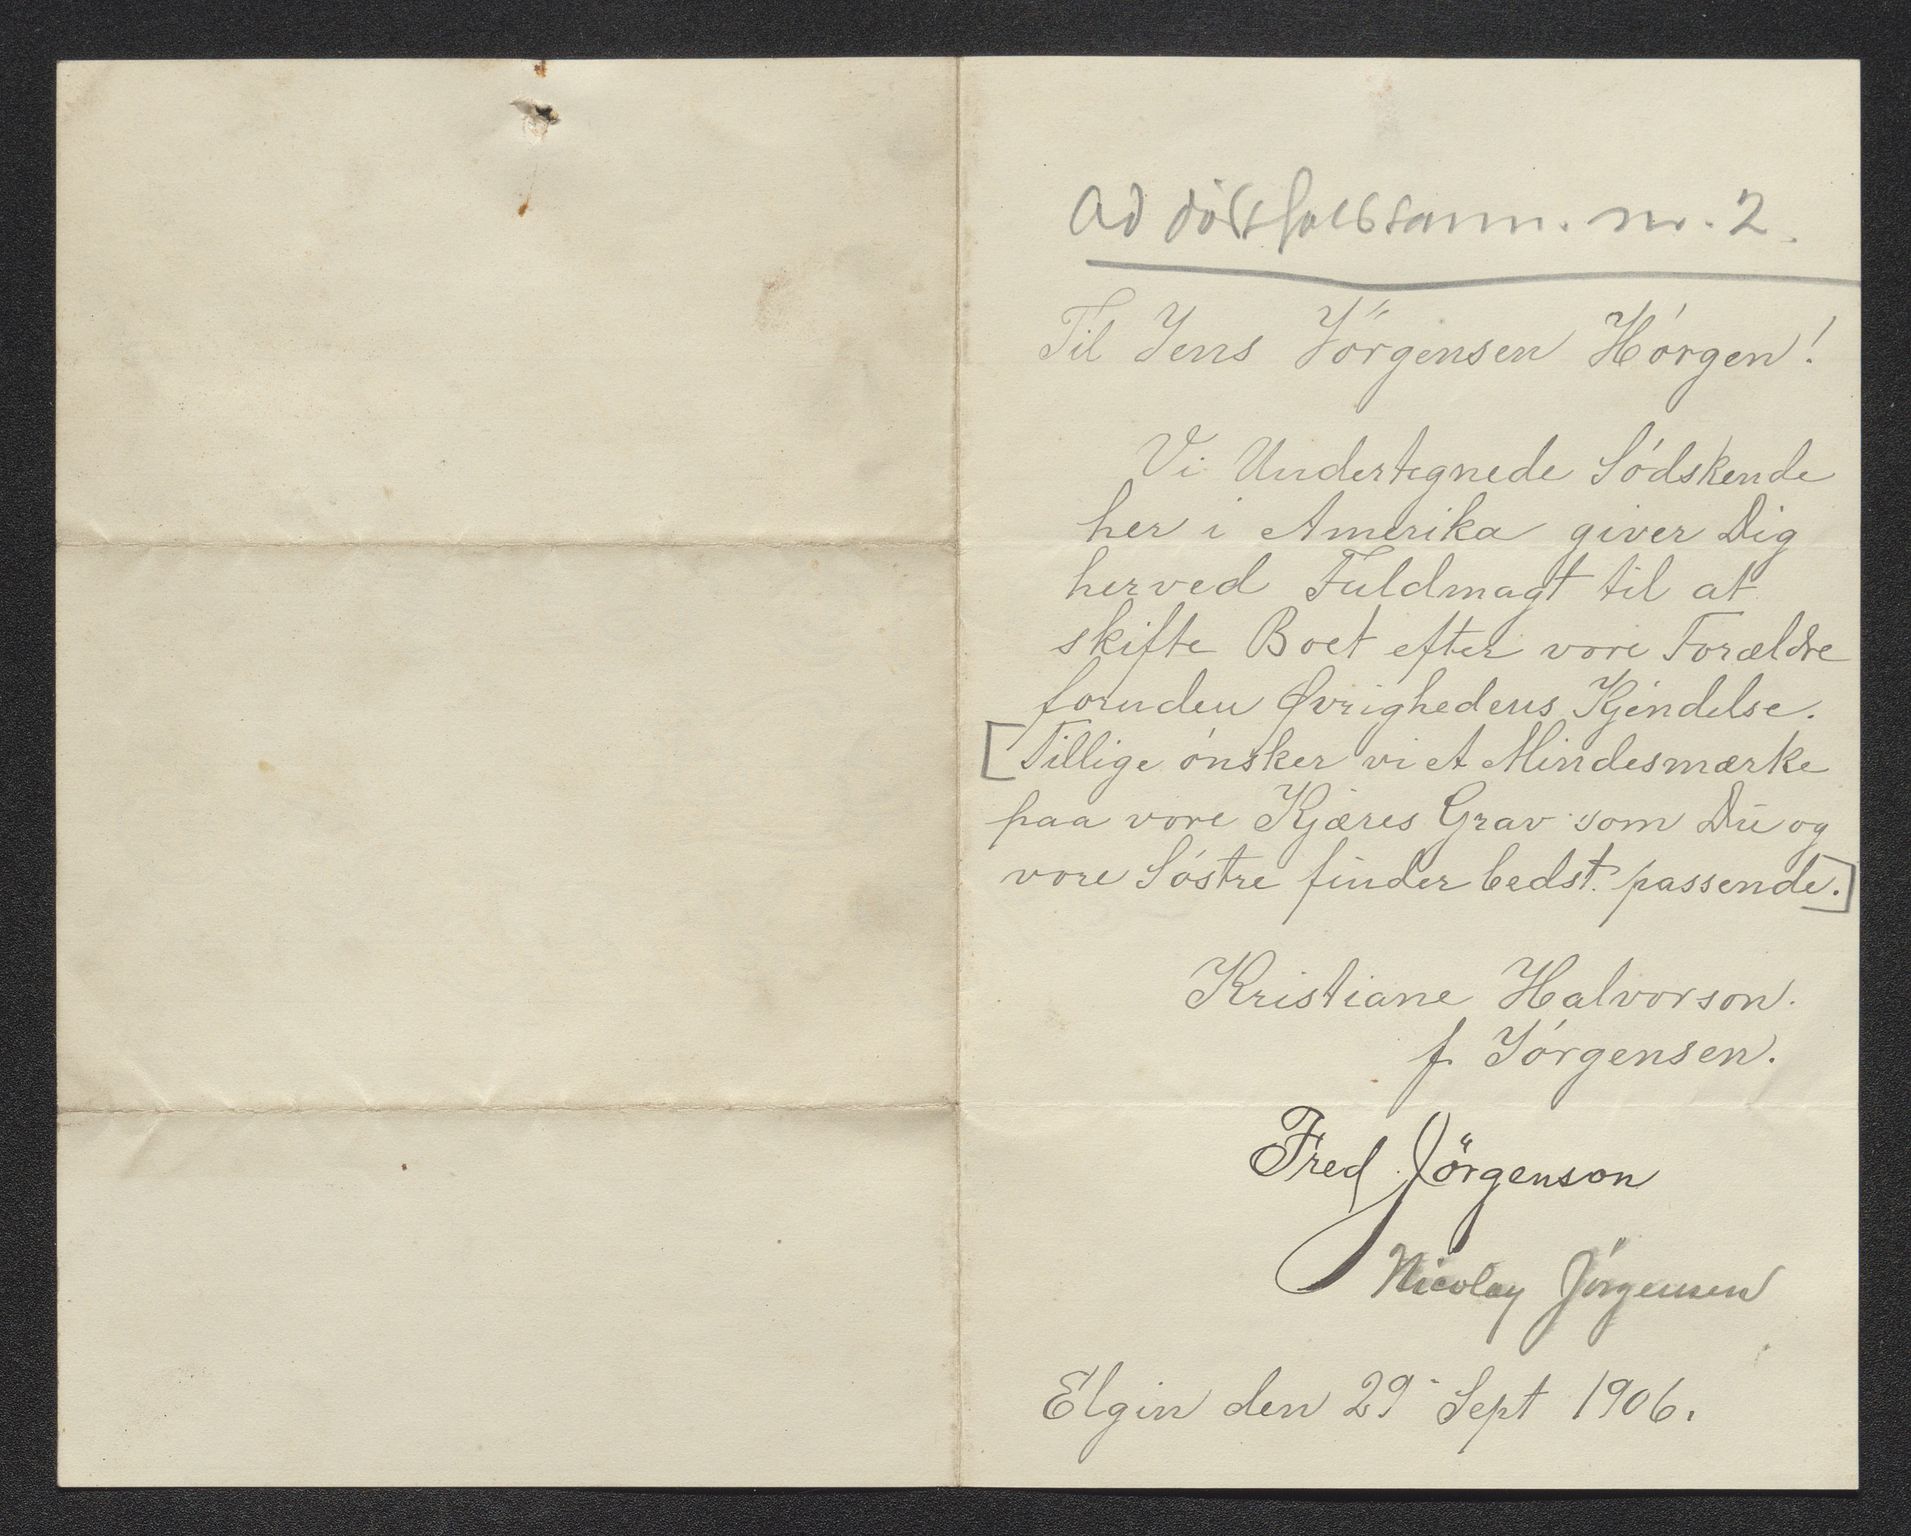 Ad dødsfaldsanm. nr. 2.
Til Jens Jörgensen Hórgen!
Vi Undertegnede Sódskende
her i Amerika giver Dig
herved Fuldmagt til at
skifte Boet efter vore Forældre
foruden Øvrighedens Kjendelse.
[Tillige ónsker vi et Mindesmærke
paa vore Kjæres Grav som Du og
vore Sóstre finder bedst passende.]
Kristiane Halvorson.
f. Jórgensen.
Fred Jörgenson
Nicolay Jörgensen
Elgin den 29 Sept 1906.